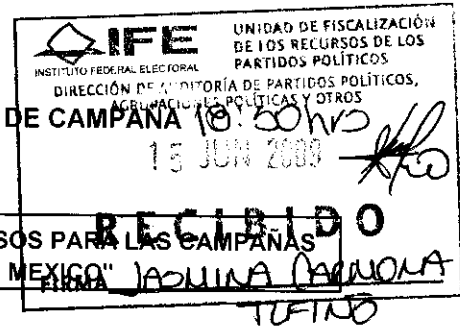 IFE
INSTITUTO FEDERAL ELECTORAL
UNIDAD DE FISCALIZACIÓN
DE LOS RECURSOS DE LOS
PARTIDOS POLÍTICOS
DIRECCIÓN DE AUDITORÍA DE PARTIDOS POLÍTICOS,
AGRUPACIONES POLÍTICAS Y OTROS
DE CAMPAÑA 18:50 hrs
15 JUN 2009
RECIBIDO
SOS PARA LAS CAMPAÑAS
MEXICO"
FIRMA JASMINA CARMONA
TUFIÑO